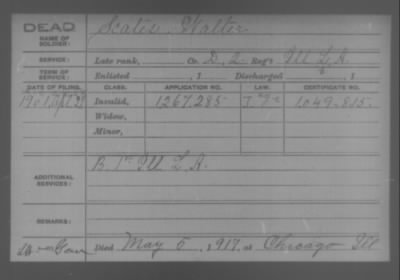 DEAD
NAME OF
SOLDIER:
Scates, Walter
SERVICE:
Late rank, Co. D, 2 Reg't Ill L. A.
TERM OF
SERVICE:
Enlisted , 1 Discharged , 1
DATE OF FILING. CLASS. APPLICATION NO. LAW. CERTIFICATE NO.
1901 Invalid, 1267.285 1.049.815
Widow,
Minor,
ADDITIONAL
SERVICES:
B 1" Ill L. A.
REMARKS:
Died May 5, 1917, at Chicago Ill